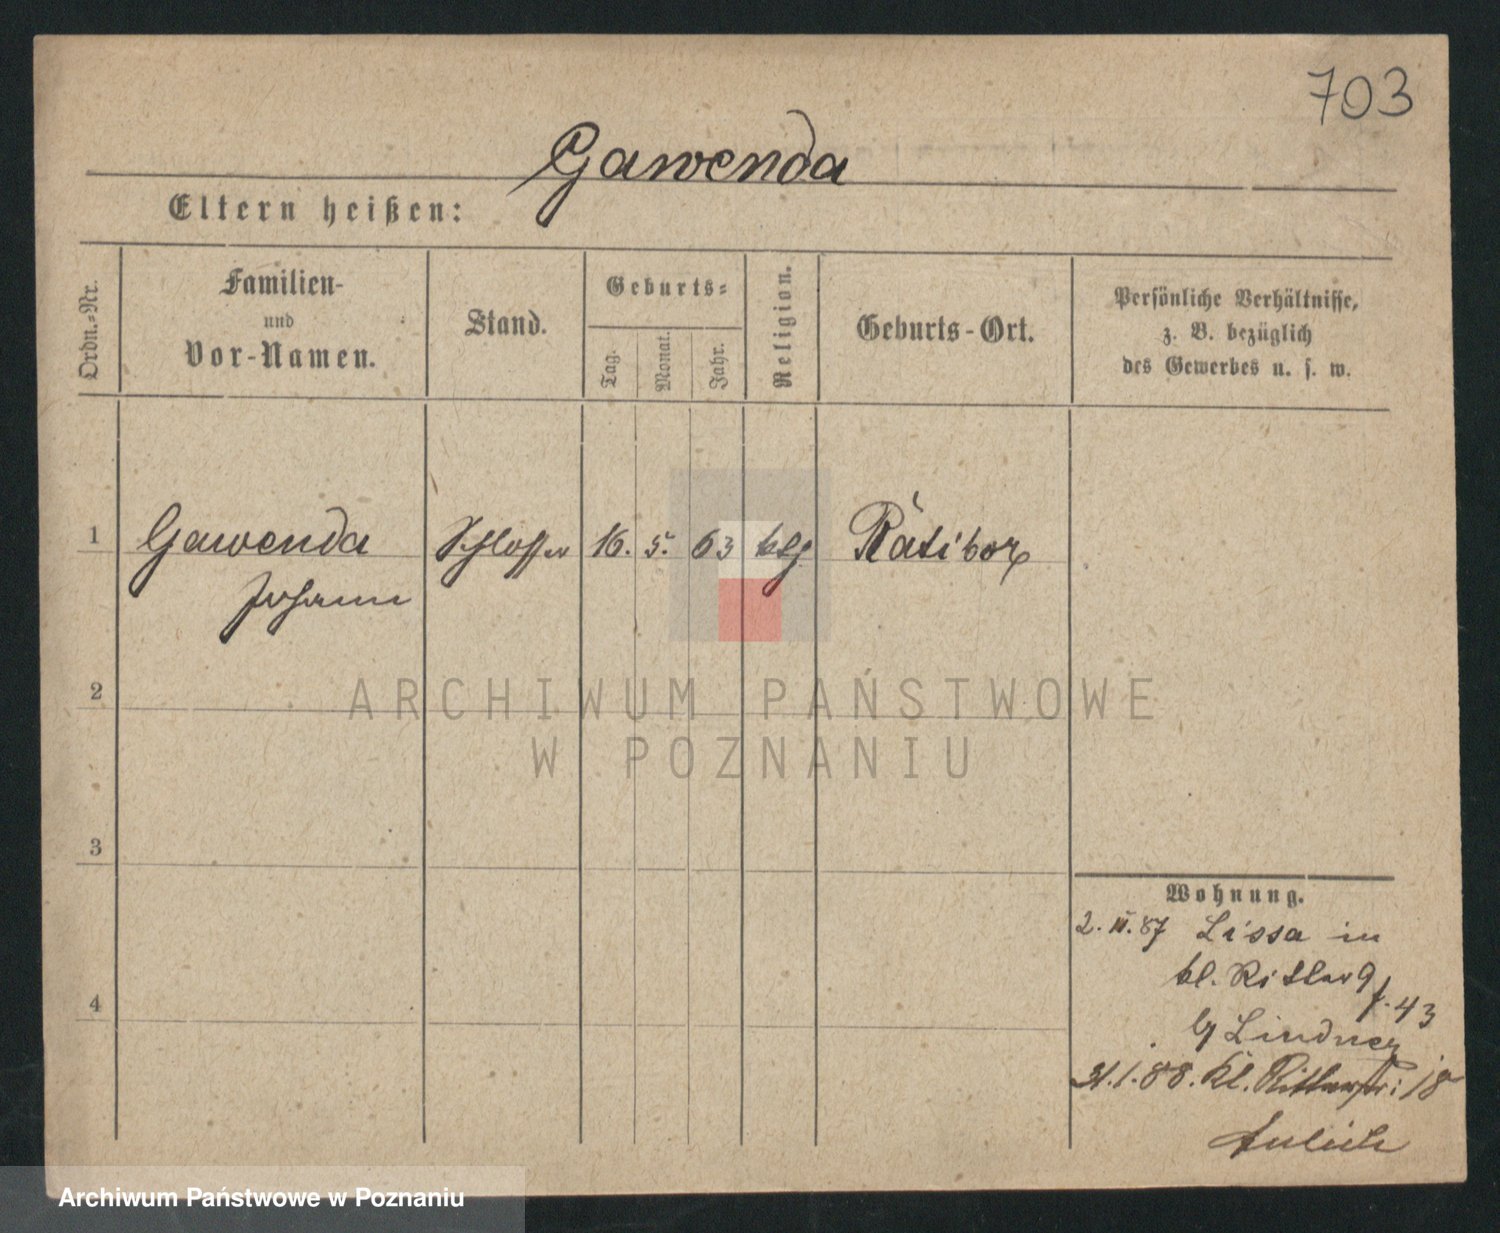 703
Gawenda
Eltern heißen:
Ordn.-Nr.
Familien-
und
Vor-Namen.
Stand.
Geburts-
Tag.
Monat.
Jahr.
Religion.
Geburts-Ort.
Persönliche Verhältnisse,
z. B. bezüglich
des Gewerbes u. s. w.
1
Gawenda
Johann
Schlosser
16.
5.
63
ktg
Ratibor
2
ARCHIWUM PAŃSTWOWE
W POZNANIU
3
Wohnung.
2. 87 Lissa in
kl. Ritter 9
43
4
Lindner
31.1.88. Kl. Ritterstr: 18
Archiwum Państwowe w Poznaniu